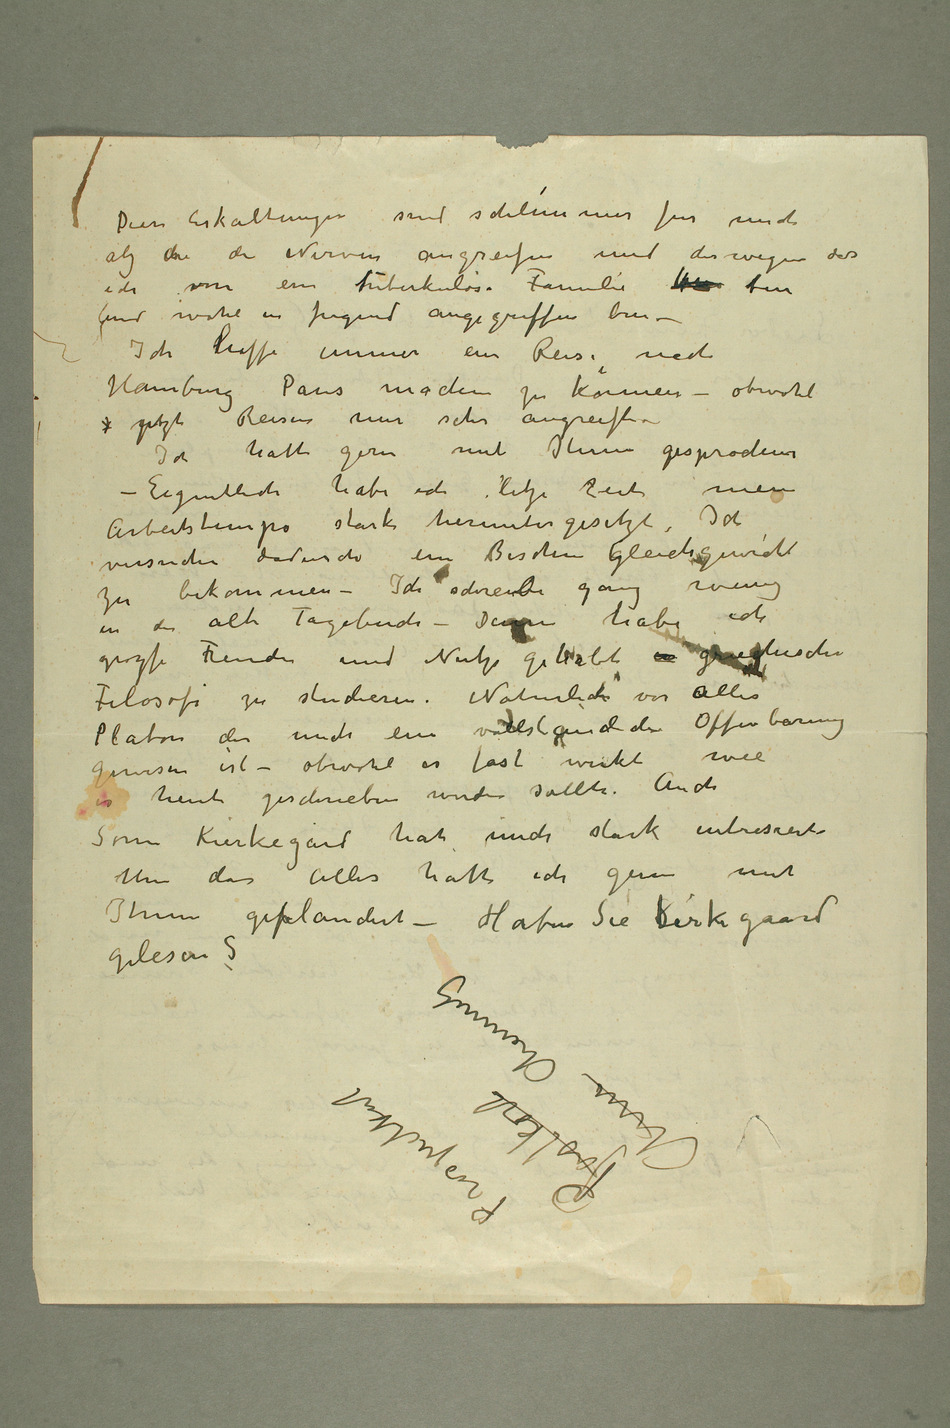 Diese Erkältungen sind schlimmer für mich
als die die Nerven angreifen und deswegen das
ich von eine tuberkulöse Familie bin
und wohl in Jugend angegriffen bin –
Ich hoffe immer ein Reise nach
Hamburg Paris machen zu können – obwohl
jetzt Reisen mir sehr angreift –
Ich hatte gern mit Ihnen gesprochen
– Eigentlich habe ich letze Zeit mein
Arbeitstempo stark heruntergesetzt, Ich
versuche dadurch ein Bischen Gleichgewicht
zu bekommen – Ich schreibe ganz wenig
in die alte Tagebuch – Denn habe ich
grosse Freude und Nutze gehabt griegische
Filosofi zu studieren. Naturlich vor alles
Platon der mich eine vollständiche Offenbarung
gewesen ist – obwohl er fast wirkt wie
es heute geschrieben werden sollte. Auch
Sörn Kierkegård hat mich stark intresiert
Um das alles hatte ich gern mit
Ihnen geplaudert – Haben Sie Kirkegaard
gelesen S